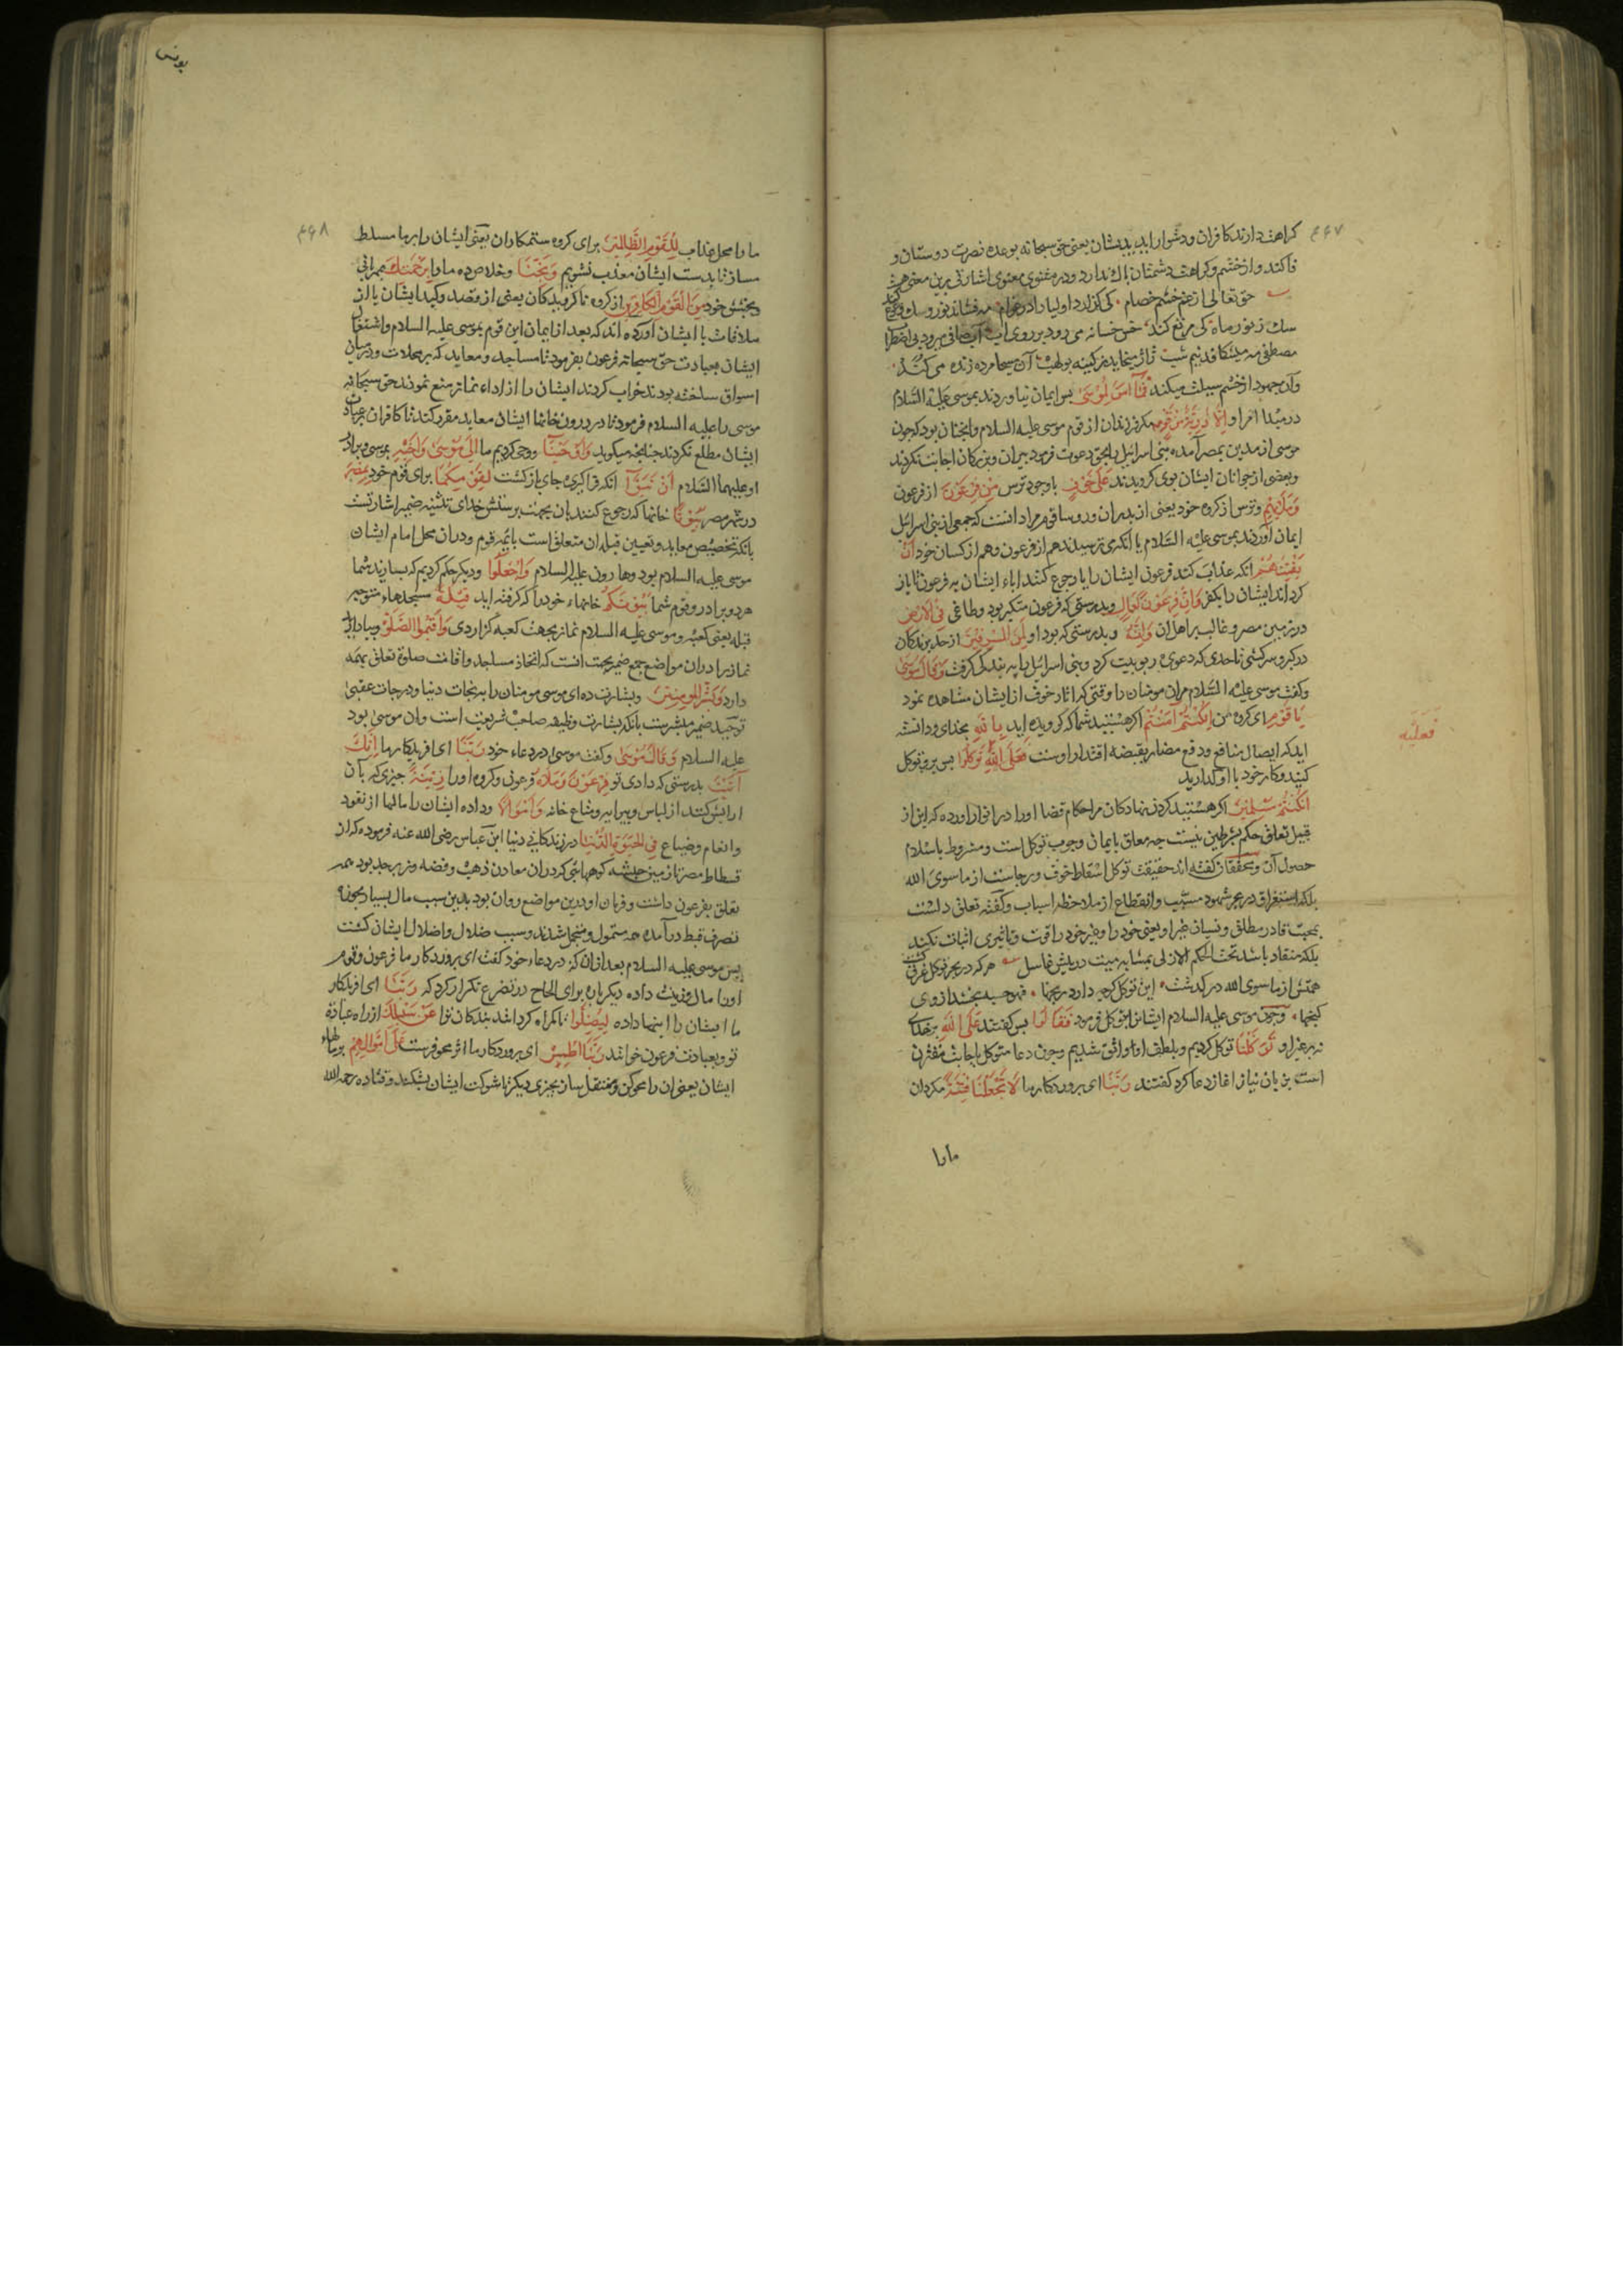 ۴۶۷
کراهت دارند کافران و دشوار اید بدیشان یعنی حق سبحانه بوعده نصرت دوستان و
فا کند و از خشم و کراهت دشمنان باک ندارد و در مثنوی معنوی اشارتی برین معنی هست
حق تعالی از غم خشم خصام کی گذارد اولیا را در عوام مه فشاند نور و سک
سک ز نور ماه کی مرتع کند خس خسانه می رود بر روی اب اب صافی میرود بی اضطراب
مصطفی مه میشکافد نیم شب ژاژ میخاید ز کینه بولهب آن مسیحا مرده زنده می کند
وآن جهود از خشم سبلت میکند فَمَا آمَنَ لِمُوسَىٰ پس ایمان نیاوردند بموسی علیه السلام
در مبدا امر او إِلَّا ذُرِّيَّةٌ مِنْ قَوْمِهِ مکر فرزندان از قوم موسی علیه السلام وانچنان بود که چون
موسی از مدین بمصر آمده بنی اسرائیل را بحق دعوت فرمود پیران و بزرکان اجابت نکردند
و بعضی از جوانان ایشان بوی کرویدند عَلَىٰ خَوْفٍ با وجود ترس مِنْ فِرْعَوْنَ از فرعون
وَمَلَئِهِمْ و ترس از کروه خود یعنی از پدران و مراد انست که جمعی از بنی اسرائیل
ایمان آوردند بموسی علیه السلام با آنکه می ترسیدند هم از فرعون و هم از کسان خود أَنْ
يَفْتِنَهُمْ انکه عذاب کند فرعون ایشان را یا رجوع کنند اباء ایشان به فرعون تا باز
کرداند ایشان را بکفر وَإِنَّ فِرْعَوْنَ لَعَالٍ و بدرستی که فرعون متکبر بود و طاغی فِي الْأَرْضِ
در زمین مصر و غالب بر اهل ان وَإِنَّهُ و بدرستی که بود او لَمِنَ الْمُسْرِفِينَ از حد برندکان
در کبر و سرکشی تا حدی که دعوی ربوبیت کرد و بنی اسرائیل را به بندکی کرفت وَقَالَ مُوسَىٰ
وکفت موسی علیه السلام مران مومنان را وقتی که اثار خوف از ایشان مشاهده نمود
يَا قَوْمِ ای کروه من إِنْ كُنْتُمْ آمَنْتُمْ اکر هستید شما که کرویده اید بِاللَّهِ بخدای و دانسته
فَعَلَيْهِ
اید که ایصال منافع و دفع مضار بقبضه اقتدار اوست فَعَلَى اللَّهِ تَوَكَّلُوا پس برو توکل
کنید و کار خود با او گذارید
إِنْ كُنْتُمْ مُسْلِمِينَ اکر هستید کردن نهادکان مر احکام قضا او را در انوار اورده که این از
قبیل تعلیق حکم بشرطین نیست چه معلق بایمان وجوب توکل است و مشروط باسلام
حصول آن و محققان کفته اند حقیقت توکل اسقاط خوف و رجاست از ما سوی الله
بلکه استغراق در بحر شهود مسبب و انقطاع از ملاحظه اسباب و کفته تعلق دلست
بمحبت قادر مطلق و نسیان غیر او یعنی خود را و غیر خود را قوت و تاثیری اثبات نکند
بلکه منقاد باشد تحت الحکم الازلی بمثابه میت در پیش غاسل هر که در بحر توکل غرق گشت
همتش از ما سوی الله در گذشت این توکل کرچه دارد رنجها فهو حسبه بخشد از وی
کنجها و چون موسی علیه السلام ایشانرا بتوکل فرمود فَقَالُوا پس کفتند عَلَى اللَّهِ بر خدای
نه بر غیر او تَوَكَّلْنَا توکل کردیم و بلطف او واثق شدیم و چون دعا متوکل باجابت مقترن
است بزبان نیاز اغاز دعا کرد کفتند رَبَّنَا ای پروردکار ما لَا تَجْعَلْنَا فِتْنَةً مکردان
ما را
یونس
۴۶۸
ما را محل عذاب لِلْقَوْمِ الظَّالِمِينَ برای کروه ستمکاران یعنی ایشان را بر ما مسلط
مساز تا بدست ایشان معذب نشویم وَنَجِّنَا و خلاص ده ما را بِرَحْمَتِكَ بمهربانی
و بخشش خود مِنَ الْقَوْمِ الْكَافِرِينَ از کروه ناکرویدکان یعنی از قصد و کید ایشان یا از
ملاقات با ایشان آورده اند که بعد از ایمان این قوم بموسی علیه السلام و اشتغال
ایشان بعبادت حق سبحانه فرعون بفرمود تا مساجد و معابد که بر محلات و درمیان
اسواق ساخته بودند خراب کردند ایشان را از اداء نماز منع نمودند حق سبحانه
موسی را علیه السلام فرمود تا در درون خانها ایشان معابد مقرر کنند تا کافران بر عبادت
ایشان مطلع نکردند چنانچه میکوید وَأَوْحَيْنَا و وحی کردیم ما إِلَىٰ مُوسَىٰ وَأَخِيهِ بموسی و برادر
او علیهما السلام أَنْ تَبَوَّآ انکه فرا کیرید جای بازکشت لِقَوْمِكُمَا برای قوم خود بِمِصْرَ
در شهر مصر بُيُوتًا خانها که رجوع کنند بان بجهت پرستش خدای تثنیه ضمیر اشارتست
بانکه تخصیص معابد و تعیین قبله ان متعلق است بائمه قوم و دران محل امام ایشان
موسی علیه السلام بود و هارون علیه السلام وَاجْعَلُوا و دیکر حکم کردیم که بسازید شما
هر دو برادر و قوم شما بُيُوتَكُمْ خانهاء خود را که کرفته اید قِبْلَةً مسجدهاء متوجه
قبله یعنی کعبه و موسی علیه السلام نماز بجهت کعبه کزاردی وَأَقِيمُوا الصَّلَاةَ و بپا دارید
نماز را دران مواضع جمع ضمیر بجهت انست که اتخاذ مساجد و اقامت صلوة تعلق بهمه
دارد وَبَشِّرِ الْمُؤْمِنِينَ و بشارت ده ای موسی مومنان را بنجات دنیا و درجات عقبی
توحید ضمیر مبشر بجهت انکه بشارت وظیفه صاحب شریعت است وان موسی بود
علیه السلام وَقَالَ مُوسَىٰ وکفت موسی در دعاء خود رَبَّنَا ای افریدکار ما إِنَّكَ
آتَيْتَ بدرستی که دادی تو فِرْعَوْنَ وَمَلَأَهُ فرعون و کروه او را زِينَةً چیزی که بآن
ارایش کنند از لباس و پیرایه و متاع خانه وَأَمْوَالًا و داده ایشان را مالها از نقود
و انعام و ضیاع فِي الْحَيَاةِ الدُّنْيَا در زندکانی دنیا ابن عباس رضی الله عنه فرموده که از
فسطاط مصر تا زمین حبشه کوههایی که دران معادن ذهب و فضه و زبرجد بود همه
تعلق بفرعون داشت و فرمان او درین مواضع روان بود بدین سبب مال بسیار
تصرف قبط درآمده همه متمول و متجمل شدند و سبب ضلال و اضلال ایشان کشت
پس موسی علیه السلام بعد از ان که در دعاء خود کفت ای پروردکار ما فرعون و قوم
او را مال و زینت داده دیکر باره برای الحاح در تضرع تکرار کرد که رَبَّنَا ای افریدکار
ما ایشان را اینها داده لِيُضِلُّوا تا کمراه کردانند بندکان ترا عَنْ سَبِيلِكَ از راه عبادت
تو و بعبادت فرعون خوانند رَبَّنَا اطْمِسْ ای پروردکار ما اثر محو فرست عَلَىٰ أَمْوَالِهِمْ بر مالهاء
ایشان یعنی ان را محو کن و منتقل ساز بچیزی دیکر تا شوکت ایشان بشکند و قتاده رحمه الله